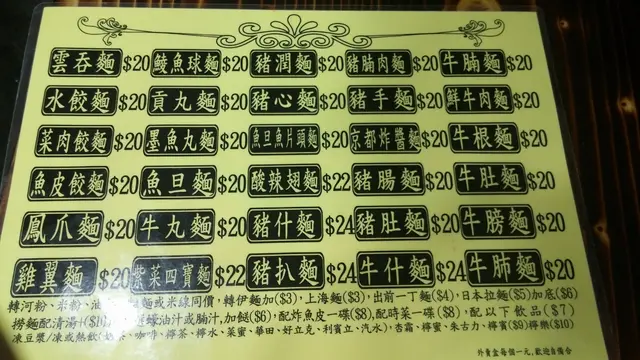 雲吞麵 $20 鯪魚球麵 $20 豬潤麵 $20 豬腩肉麵 $20 牛腩麵 $20
水餃麵 $20 貢丸麵 $20 豬心麵 $20 豬手麵 $20 鮮牛肉麵 $20
菜肉餃麵 $20 墨魚丸麵 $20 魚旦魚片頭麵 $20 京都炸醬麵 $20 牛根麵 $20
魚皮餃麵 $20 魚旦麵 $20 酸辣翅麵 $22 豬腸麵 $20 牛肚麵 $20
鳳爪麵 $20 牛丸麵 $20 豬什麵 $24 豬肚麵 $20 牛膀麵 $20
雞翼麵 $20 紫菜四寶麵 $22 豬扒麵 $24 牛什麵 $24 牛肺麵 $20
轉河粉、米粉、油 麵或米線同價,轉伊麵加($3),上海麵($3),出前一丁麵($4),日本拉麵($5)加底($6)
撈麵配清湯+($10) 蠔油汁或腩汁,加餸($6),配炸魚皮一碟($8),配時菜一碟($8),配以下飲品($7)
凍豆漿/凍或熱飲( 茶、咖啡、檸茶、檸水、菜蜜、華田、好立克、利賓立、汽水),杏霜、檸蜜、朱古力、檸賓($9)檸樂($10)
外賣盒每個一元,歡迎自備合